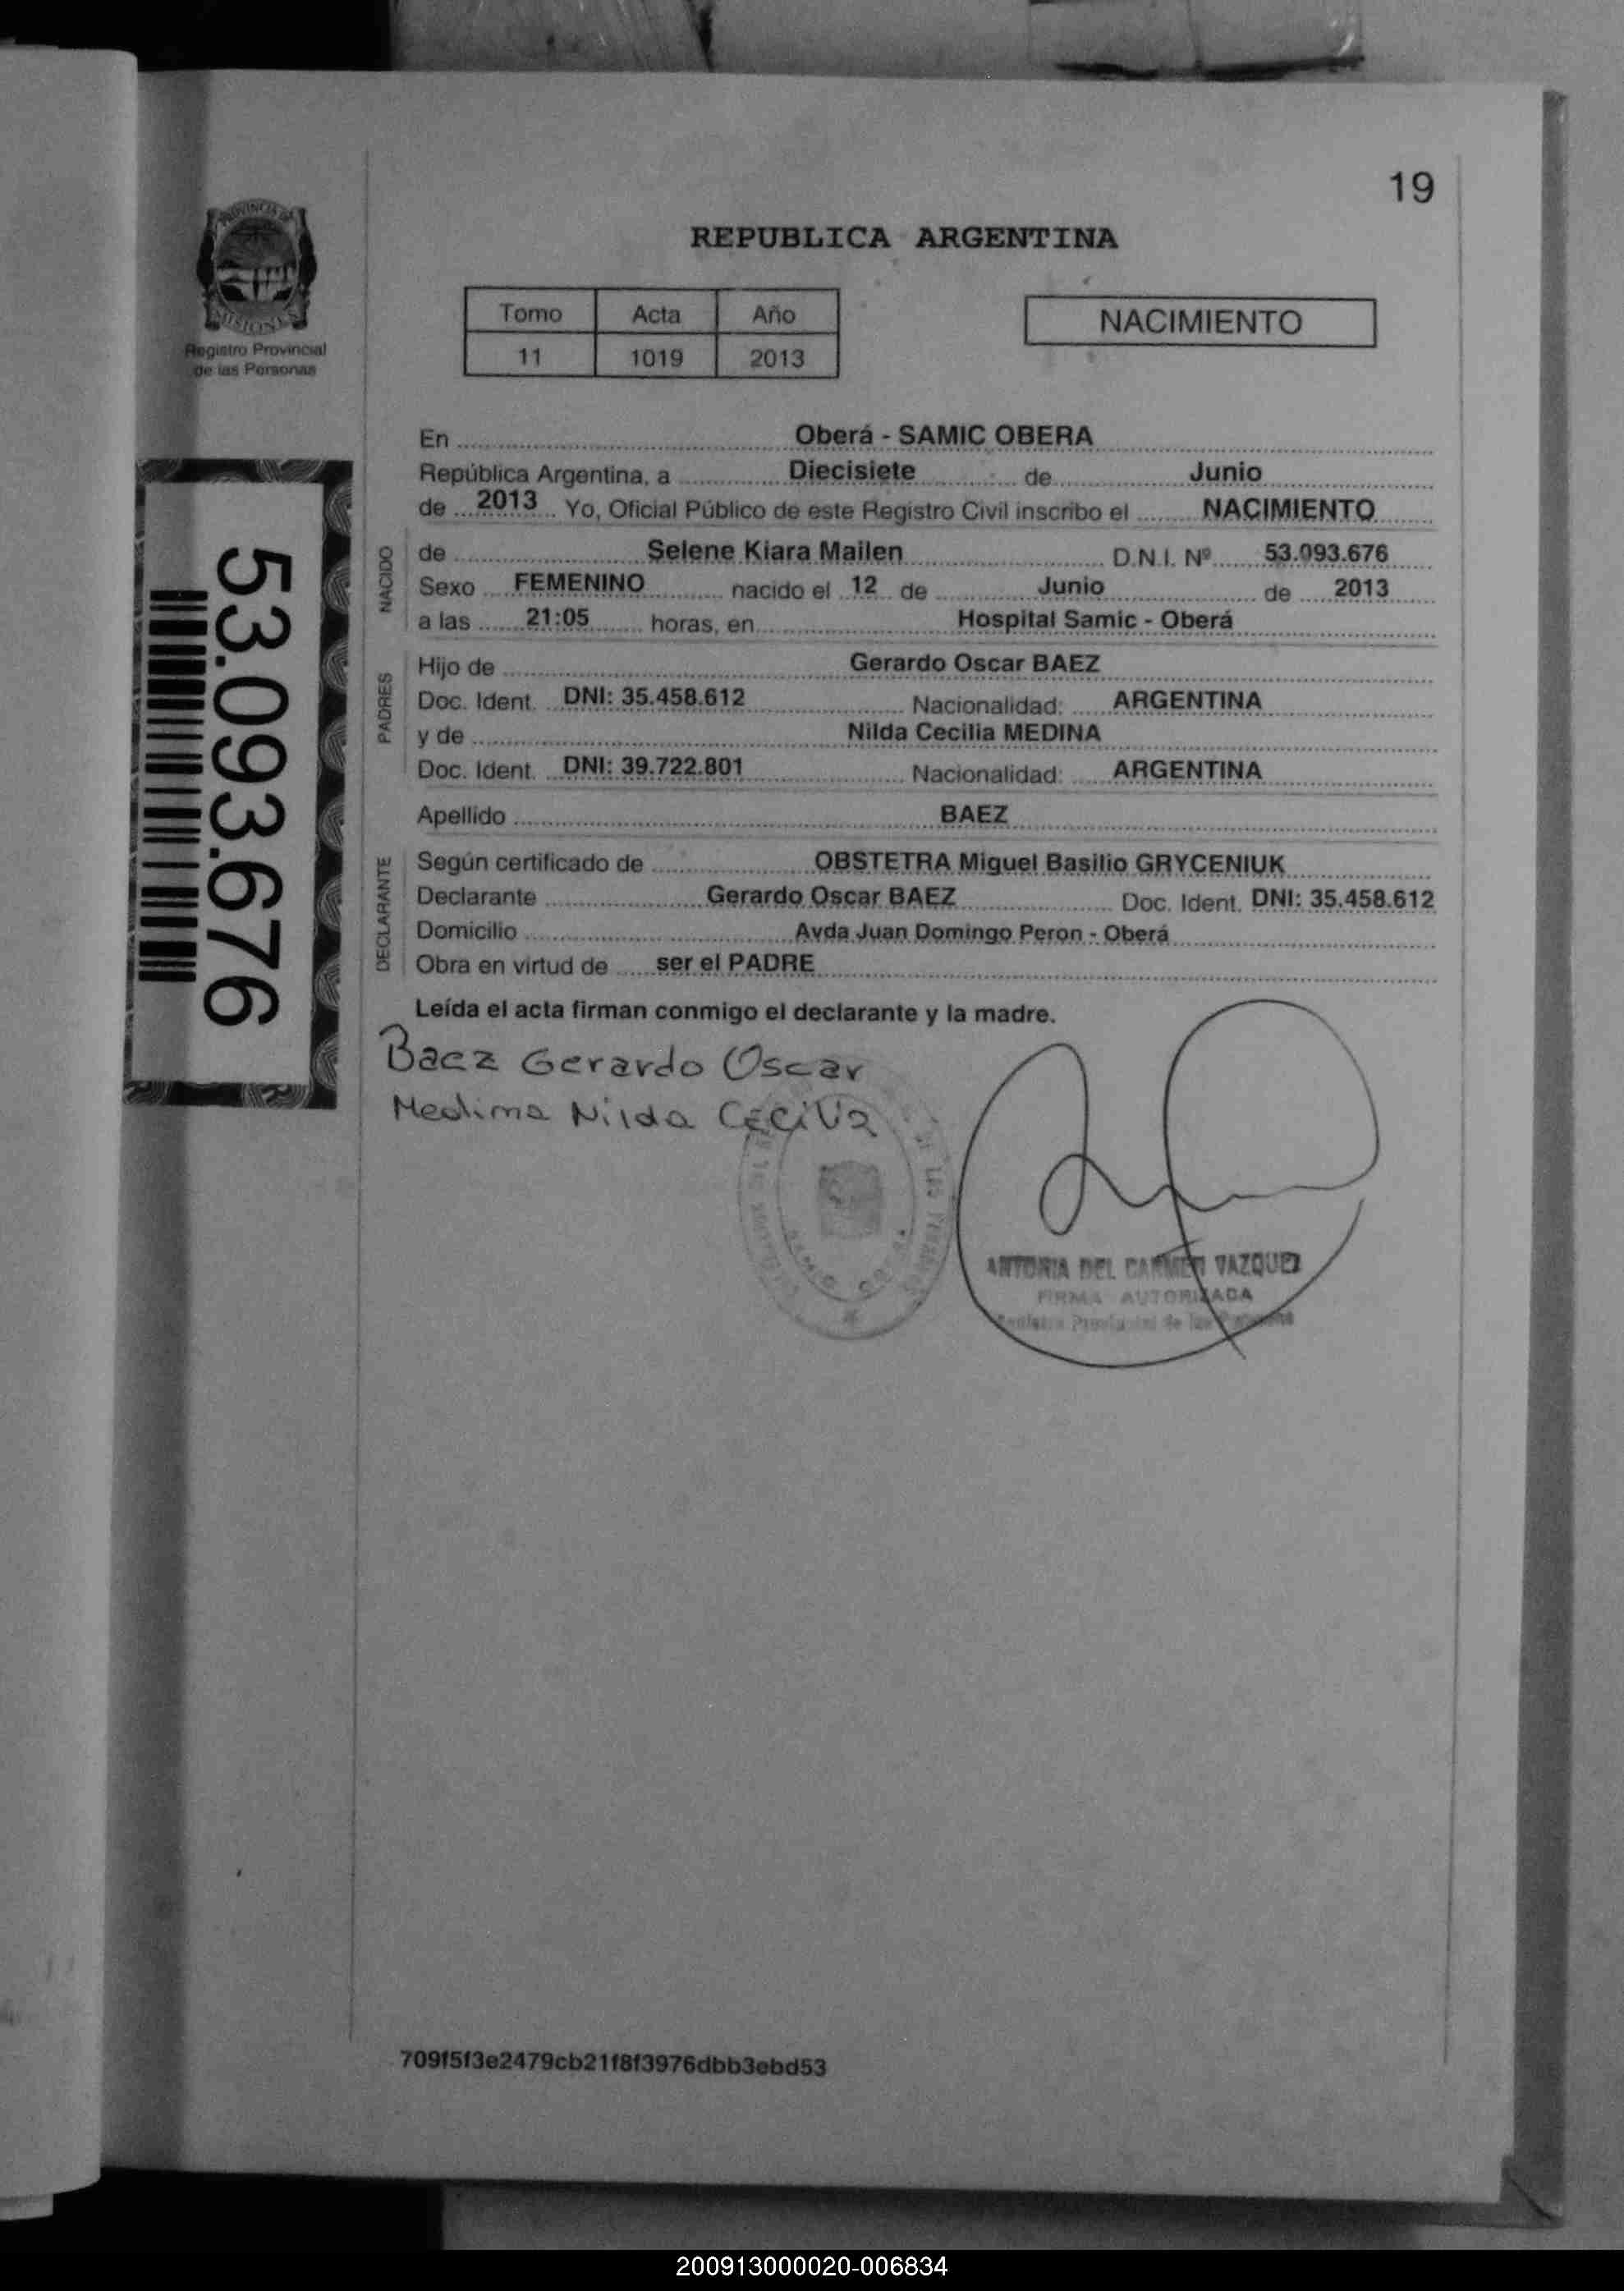 19
PROVINCIA DE
MISIONES
Registro Provincial
de las Personas
REPUBLICA ARGENTINA
Tomo Acta Año
11 1019 2013
NACIMIENTO
53.093.676
En Oberá - SAMIC OBERA
República Argentina, a Diecisiete de Junio
de 2013 Yo, Oficial Público de este Registro Civil inscribo el NACIMIENTO
NACIDO
de Selene Kiara Mailen D.N.I. Nº 53.093.676
Sexo FEMENINO nacido el 12 de Junio de 2013
a las 21:05 horas, en Hospital Samic - Oberá
PADRES
Hijo de Gerardo Oscar BAEZ
Doc. Ident. DNI: 35.458.612 Nacionalidad: ARGENTINA
y de Nilda Cecilia MEDINA
Doc. Ident. DNI: 39.722.801 Nacionalidad: ARGENTINA
Apellido BAEZ
DECLARANTE
Según certificado de OBSTETRA Miguel Basilio GRYCENIUK
Declarante Gerardo Oscar BAEZ Doc. Ident. DNI: 35.458.612
Domicilio Avda Juan Domingo Peron - Oberá
Obra en virtud de ser el PADRE
Leída el acta firman conmigo el declarante y la madre.
Baez Gerardo Oscar
Medina Nilda Cecilia
ANTONIA DEL CARMEN VAZQUEZ
FIRMA AUTORIZADA
Registro Provincial de las Personas
709f5f3e2479cb21f8f3976dbb3ebd53
200913000020-006834